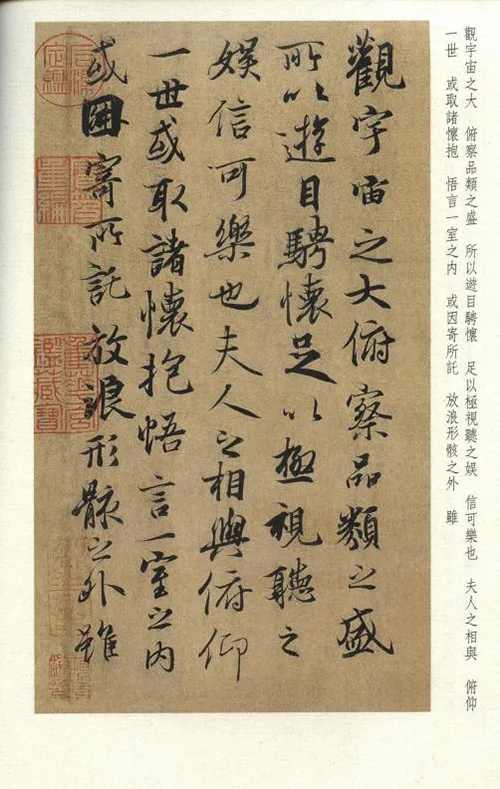 觀宇宙之大　俯察品類之盛　所以遊目騁懷　足以極視聽之娛　信可樂也　夫人之相與　俯仰
一世　或取諸懷抱　悟言一室之内　或因寄所託　放浪形骸之外　雖
觀宇宙之大俯察品類之盛
所以遊目騁懷足以極視聽之
娛信可樂也夫人之相與俯仰
一世或取諸懷抱悟言一室之内
或因寄所託放浪形骸之外雖